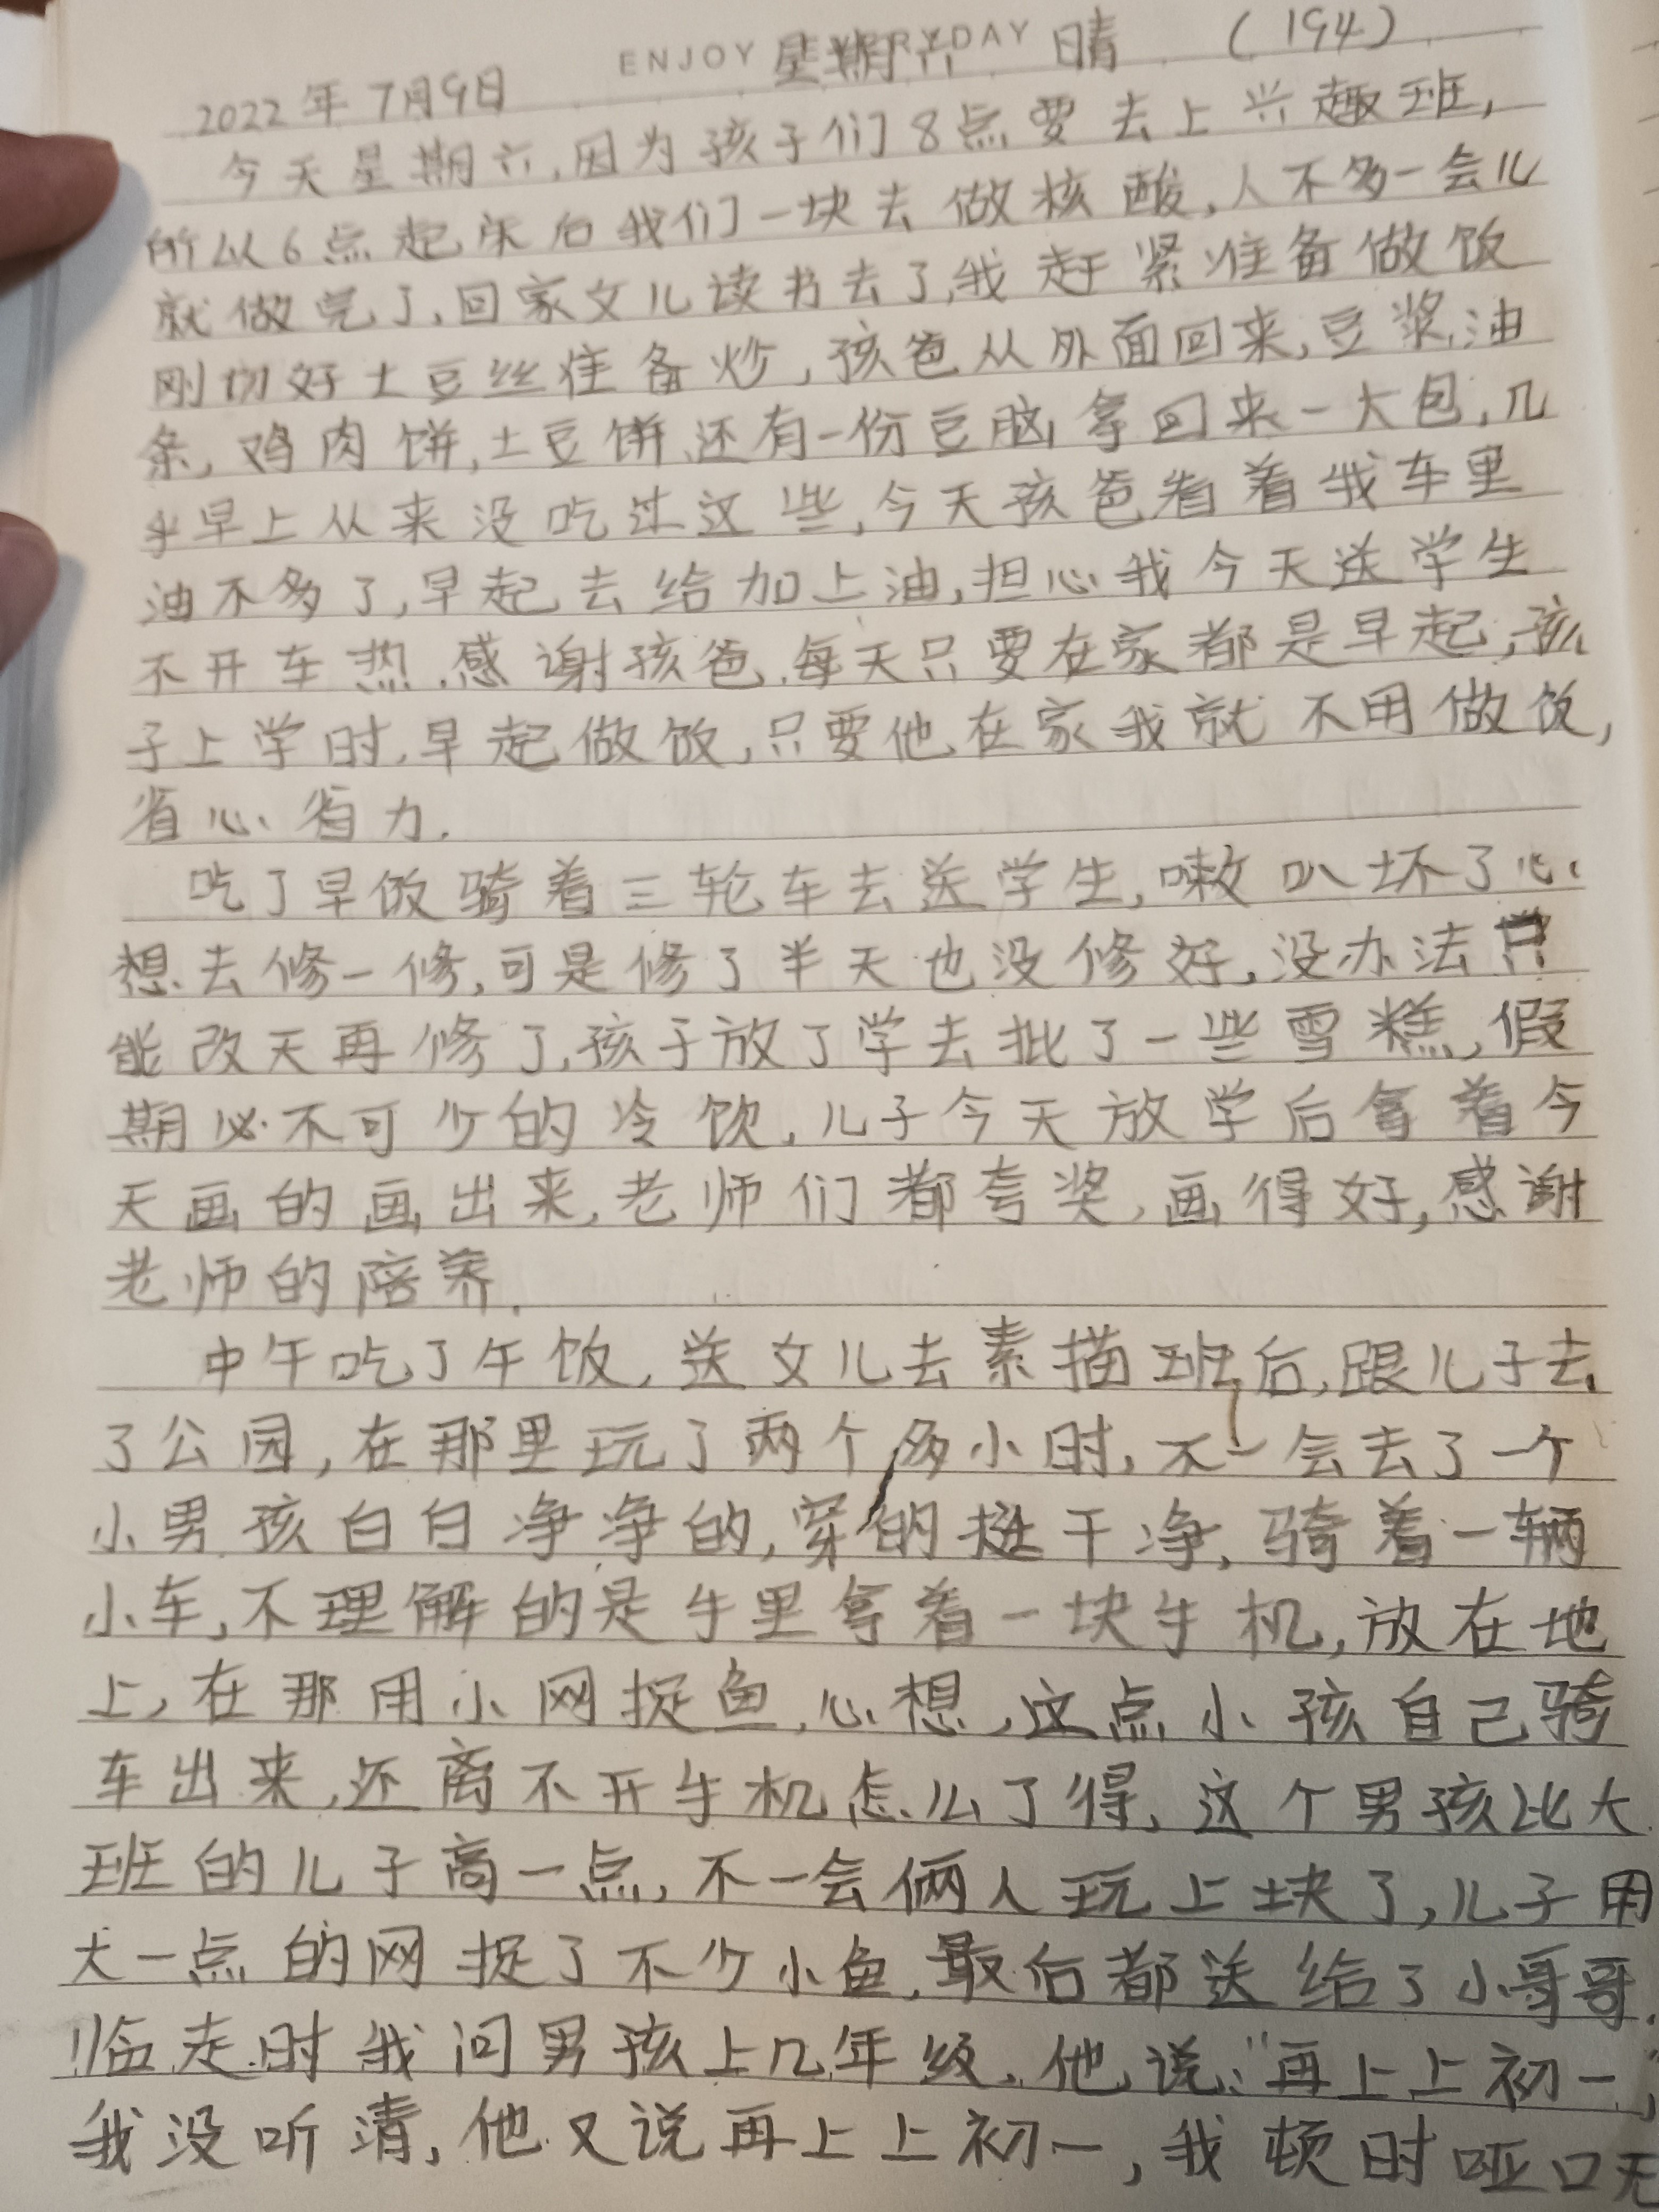 ENJOY EVERYDAY
2022年7月9日 星期六 晴 (194)
今天星期六,因为孩子们8点要去上兴趣班,
所以6点起床后我们一块去做核酸,人不多一会儿
就做完了,回家女儿读书去了,我赶紧准备做饭
刚切好土豆丝准备炒,孩爸从外面回来,豆浆,油
条,鸡肉饼,土豆饼,还有一份豆脑拿回来一大包,几
乎早上从来没吃过这些,今天孩爸看着我车里
油不多了,早起去给加上油,担心我今天送学生
不开车热.感谢孩爸.每天只要在家都是早起,孩
子上学时,早起做饭,只要他在家我就不用做饭,
省心省力.
吃了早饭骑着三轮车去送学生,嗽叭坏了心
想去修一修,可是修了半天也没修好,没办法只
能改天再修了,孩子放了学去批了一些雪糕,假
期必不可少的冷饮,儿子今天放学后拿着今
天画的画出来,老师们都夸奖,画得好,感谢
老师的陪养.
中午吃了午饭,送女儿去素描班后,跟儿子去
了公园,在那里玩了两个多小时,不一会去了一个
小男孩白白净净的,穿的挺干净,骑着一辆
小车,不理解的是手里拿着一块手机,放在地
上,在那用小网捉鱼,心想,这点小孩自己骑
车出来,还离不开手机怎么了得,这个男孩比大
班的儿子高一点,不一会俩人玩上块了,儿子用
大一点的网捉了不少小鱼,最后都送给了小哥哥.
临走时我问男孩上几年级,他说:"再上上初一,"
我没听清,他又说再上上初一,我顿时哑口无